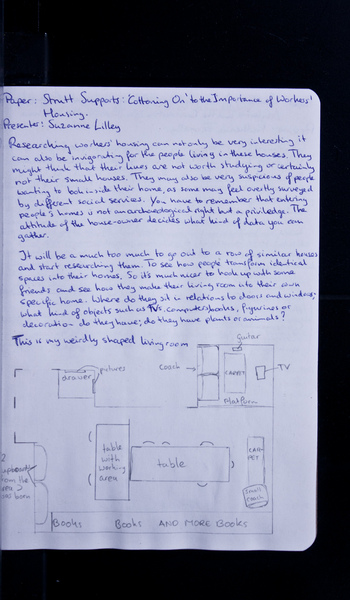 Paper: Strutt Supports: 'Cottoning On' to the Importance of Workers'
Housing.
Presenter: Suzanne Lilley
Researching workers' housing can not only be very interesting it
can also be invigorating for the people living in these houses. They
might think that their lives are not worth studying or certainly
not their small houses. They may also be very suspicious of people
wanting to look inside their home, as some may feel overtly surveyed
by different social services. You have to remember that entering
people's homes is not an archaeological right but a priviledge. The
attitude of the house-owner decides what kind of data you can
gather.
It will be a much too much to go out to a row of similar houses
and start researching them. To see how people transform identical
spaces into their homes. So it's much nicer to hook up with some
friends and see how they make their living room into their own
specific home. Where do they sit in relations to doors and windows,
what kind of objects such as TVs, computers, books, figurines or
decoration do they have; do they have plants or animals?
This is my weirdly shaped living room
guitar
pictures
drawer
coach
CARPET
TV
Platform
table
with
working
area
table
CAR-
PET
Small
coach
2
from the
born
Books
Books
AND MORE BOOKS